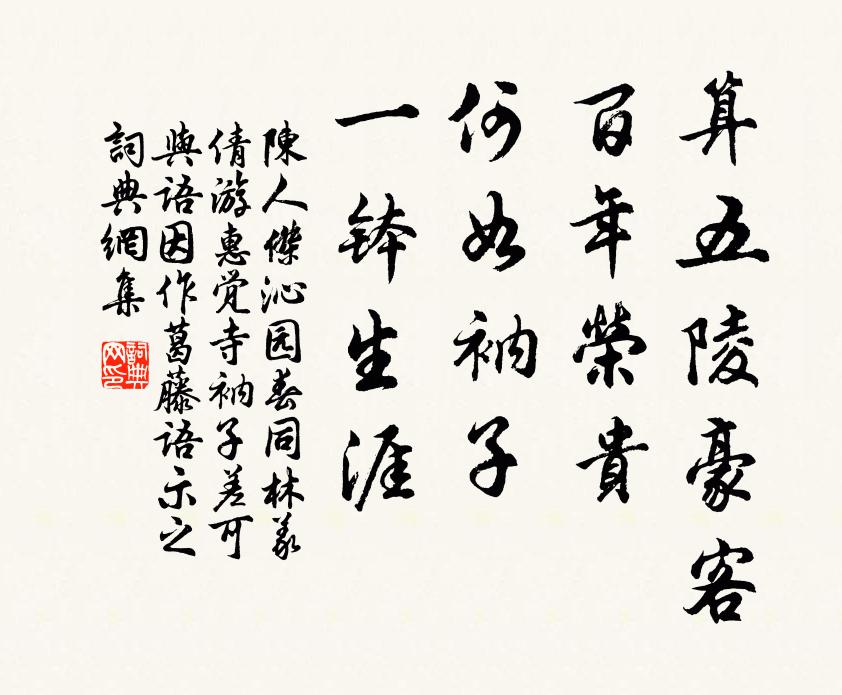 算五陵豪客
百年榮貴
何如衲子
一鉢生涯
陳人傑沁园春同林義
倩游惠覚寺衲子差可
與語因作葛藤語示之
詞典網集
詞典网印